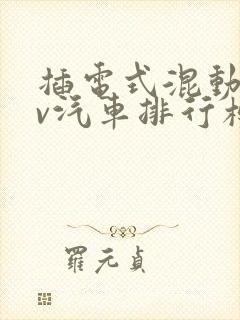 插電式混動
v汽車排行榜
羅元貞